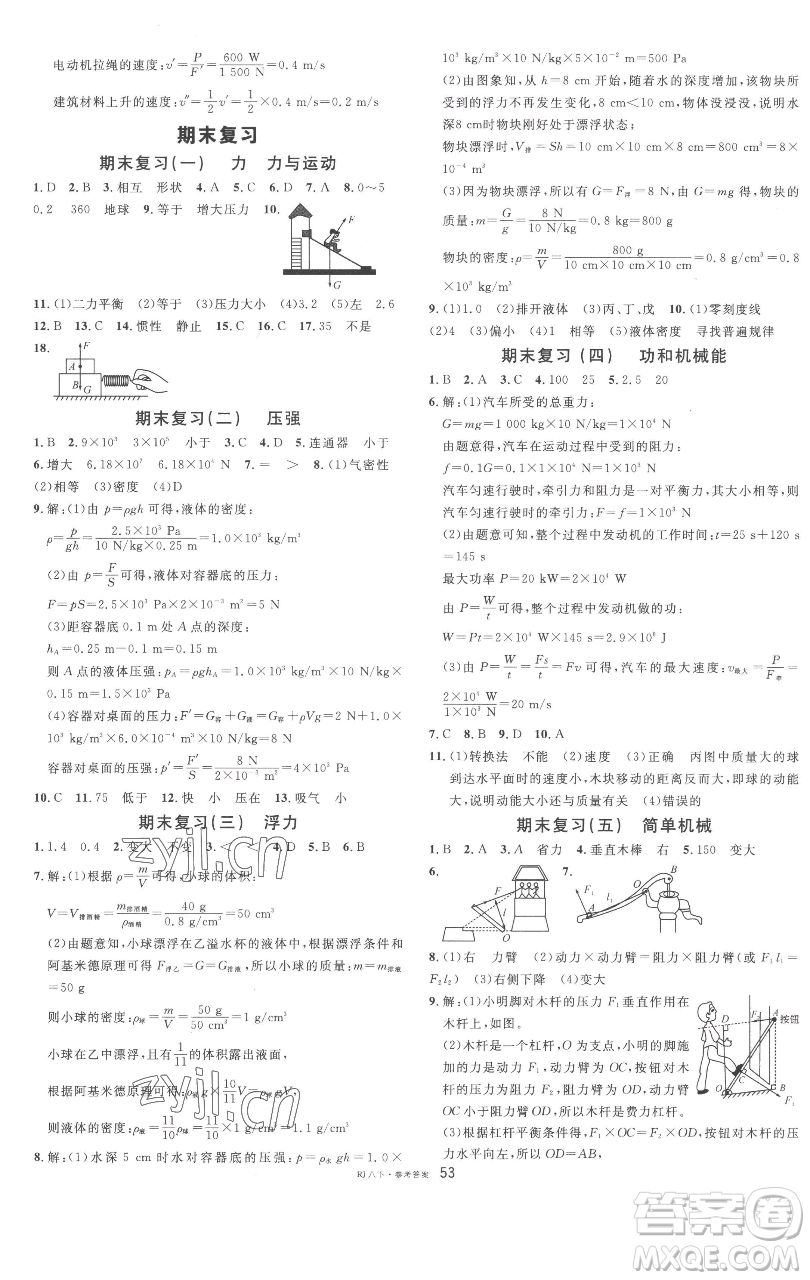 电动机拉绳的速度:v′=P/F′=600 W/1 500 N=0.4 m/s
建筑材料上升的速度:v″=1/2 v′=1/2×0.4 m/s=0.2 m/s
期末复习
期末复习(一) 力 力与运动
1. D 2. B 3. 相互 形状 4. A 5. C 6. D 7. A 8. 0～5
0.2 360 地球 9. 等于 增大压力 10.
F
G
11. (1)二力平衡 (2)等于 (3)压力大小 (4)3.2 (5)左 2.6
12. B 13. C 14. 惯性 静止 15. D 16. C 17. 35 不是
18.
F
A
B
G
期末复习(二) 压强
1. B 2. 9×10³ 3×10⁵ 小于 3. B 4. D 5. 连通器 小于
6. 增大 6.18×10⁷ 6.18×10⁴ 7. = > 8. (1)气密性
(2)相等 (3)密度 (4)D
9. 解:(1)由 p=ρgh 可得,液体的密度:
ρ=p/gh=2.5×10³ Pa/10 N/kg×0.25 m=1.0×10³ kg/m³
(2)由 p=F/S可得,液体对容器底的压力:
F=pS=2.5×10³ Pa×2×10⁻³ m²=5 N
(3)距容器底 0.1 m 处 A 点的深度:
hA=0.25 m−0.1 m=0.15 m
则 A 点的液体压强:pA=ρghA=1.0×10³ kg/m³×10 N/kg×
0.15 m=1.5×10³ Pa
(4)容器对桌面的压力:F′=G容+G液=G容+ρVg=2 N+1.0×
10³ kg/m³×6.0×10⁻⁴ m³×10 N/kg=8 N
容器对桌面的压强:p′=F′/S=8 N/2×10⁻³ m²=4×10³ Pa
10. C 11. 75 低于 12. 快 小 压在 13. 吸气 小
期末复习(三) 浮力
1. 1.4 0.4 2. 变大 不变 3. 4. D 5. B 6. B
7. 解:(1)根据 ρ=m/V可得,小球的体积:
V=V排酒精=m排酒精/ρ酒精=40 g/0.8 g/cm³=50 cm³
(2)由题意知,小球漂浮在乙溢水杯的液体中,根据漂浮条件和
阿基米德原理可得 F浮乙=G=G排液,所以小球的质量:m=m排液
=50 g
则小球的密度:ρ球=m/V=50 g/50 cm³=1 g/cm³
小球在乙中漂浮,且有1/11的体积露出液面,
根据阿基米德原理可得 ρ液g×10/11V=ρ球gV,
则液体的密度:ρ液=11/10ρ球=11/10×1 g/cm³=1.1 g/cm³
8. 解:(1)水深 5 cm 时水对容器底的压强:p=ρ水gh=1.0×
10³ kg/m³×10 N/kg×5×10⁻² m=500 Pa
(2)由图象知,从 h=8 cm 开始,随着水的深度增加,该物块所
受到的浮力不再发生变化,8 cm<10 cm,物体没浸没,说明水
深8 cm时物块刚好处于漂浮状态,
物块漂浮时,V排=Sh=10 cm×10 cm×8 cm=800 cm³=8×
10⁻⁴ m³
(3)因为物块漂浮,所以有 G=F浮=8 N,物块的
质量:m=G/g=8 N/10 N/kg=0.8 kg=800 g
物块的密度:ρ=m/V=800 g/10 cm×10 cm×10 cm=0.8 g/cm³=0.8
×10³ kg/m³
9. (1)1.0 (2)排开液体 (3)丙、丁、戊 10. (1)零刻度线
(2)4 (3)偏小 (4)1 (5)液体密度 寻找普遍规律
期末复习(四) 功和机械能
1. B 2. A 3. C 4. 100 25 5. 2.5 20
6. 解:(1)汽车所受的总重力:
G=mg=1 000 kg×10 N/kg=1×10⁴ N
由题意得,汽车在运动过程中受到的阻力:
f=0.1G=0.1×1×10⁴ N=1×10³ N
汽车匀速行驶时,牵引力和阻力是一对平衡力,其大小相等,则
汽车匀速行驶时的牵引力:F=f=1×10³ N
(2)由题意可知,整个过程中发动机的工作时间:t=25 s+120 s
=145 s
最大功率 P=20 kW=2×10⁴ W
由 P=W/t可得,整个过程中发动机做的功:
W=Pt=2×10⁴ W×145 s=2.9×10⁶ J
(3)由 P=W/t=Fs/t=Fv 可得,汽车的最大速度:v最大=P/F牵=
2×10⁴ W/1×10³ N=20 m/s
7. C 8. B 9. D 10. A
11. (1)转换法 不能 (2)速度 (3)正确 丙图中质量大的球
到达水平面时的速度小,木块移动的距离反而大,即球的动能
大,说明动能大小还与质量有关 (4)错误的
期末复习(五) 简单机械
1. B 2. A 3. A 省力 4. 垂直木棒 右 5. 150 变大
6.
F
l
O
7.
F₁
A
l₁
O
B
8. (1)右 力臂 (2)动力×动力臂=阻力×阻力臂(或 F₁l₁=
F₂l₂) (3)右侧下降 (4)变大
9. 解:(1)小明脚对木杆的压力 F₁垂直作用在
木杆上,如图。
(2)木杆是一个杠杆,O为支点,小明的脚施
加的力为动力 F₁,动力臂为 OC,按钮对木
杆的压力为阻力,阻力臂为 OD,由图可知,
OC小于阻力臂OD,所以木杆为费力杠杆。
(3)根据杠杆平衡条件得,按钮对杆的压力
水平向左,所以 OD=AB,
F₂
A
按钮
D
C
O
B
F₁
RJ八下·参考答案 53
zyjl.cn
zyjl.cn
答案圈
MXQE.COM